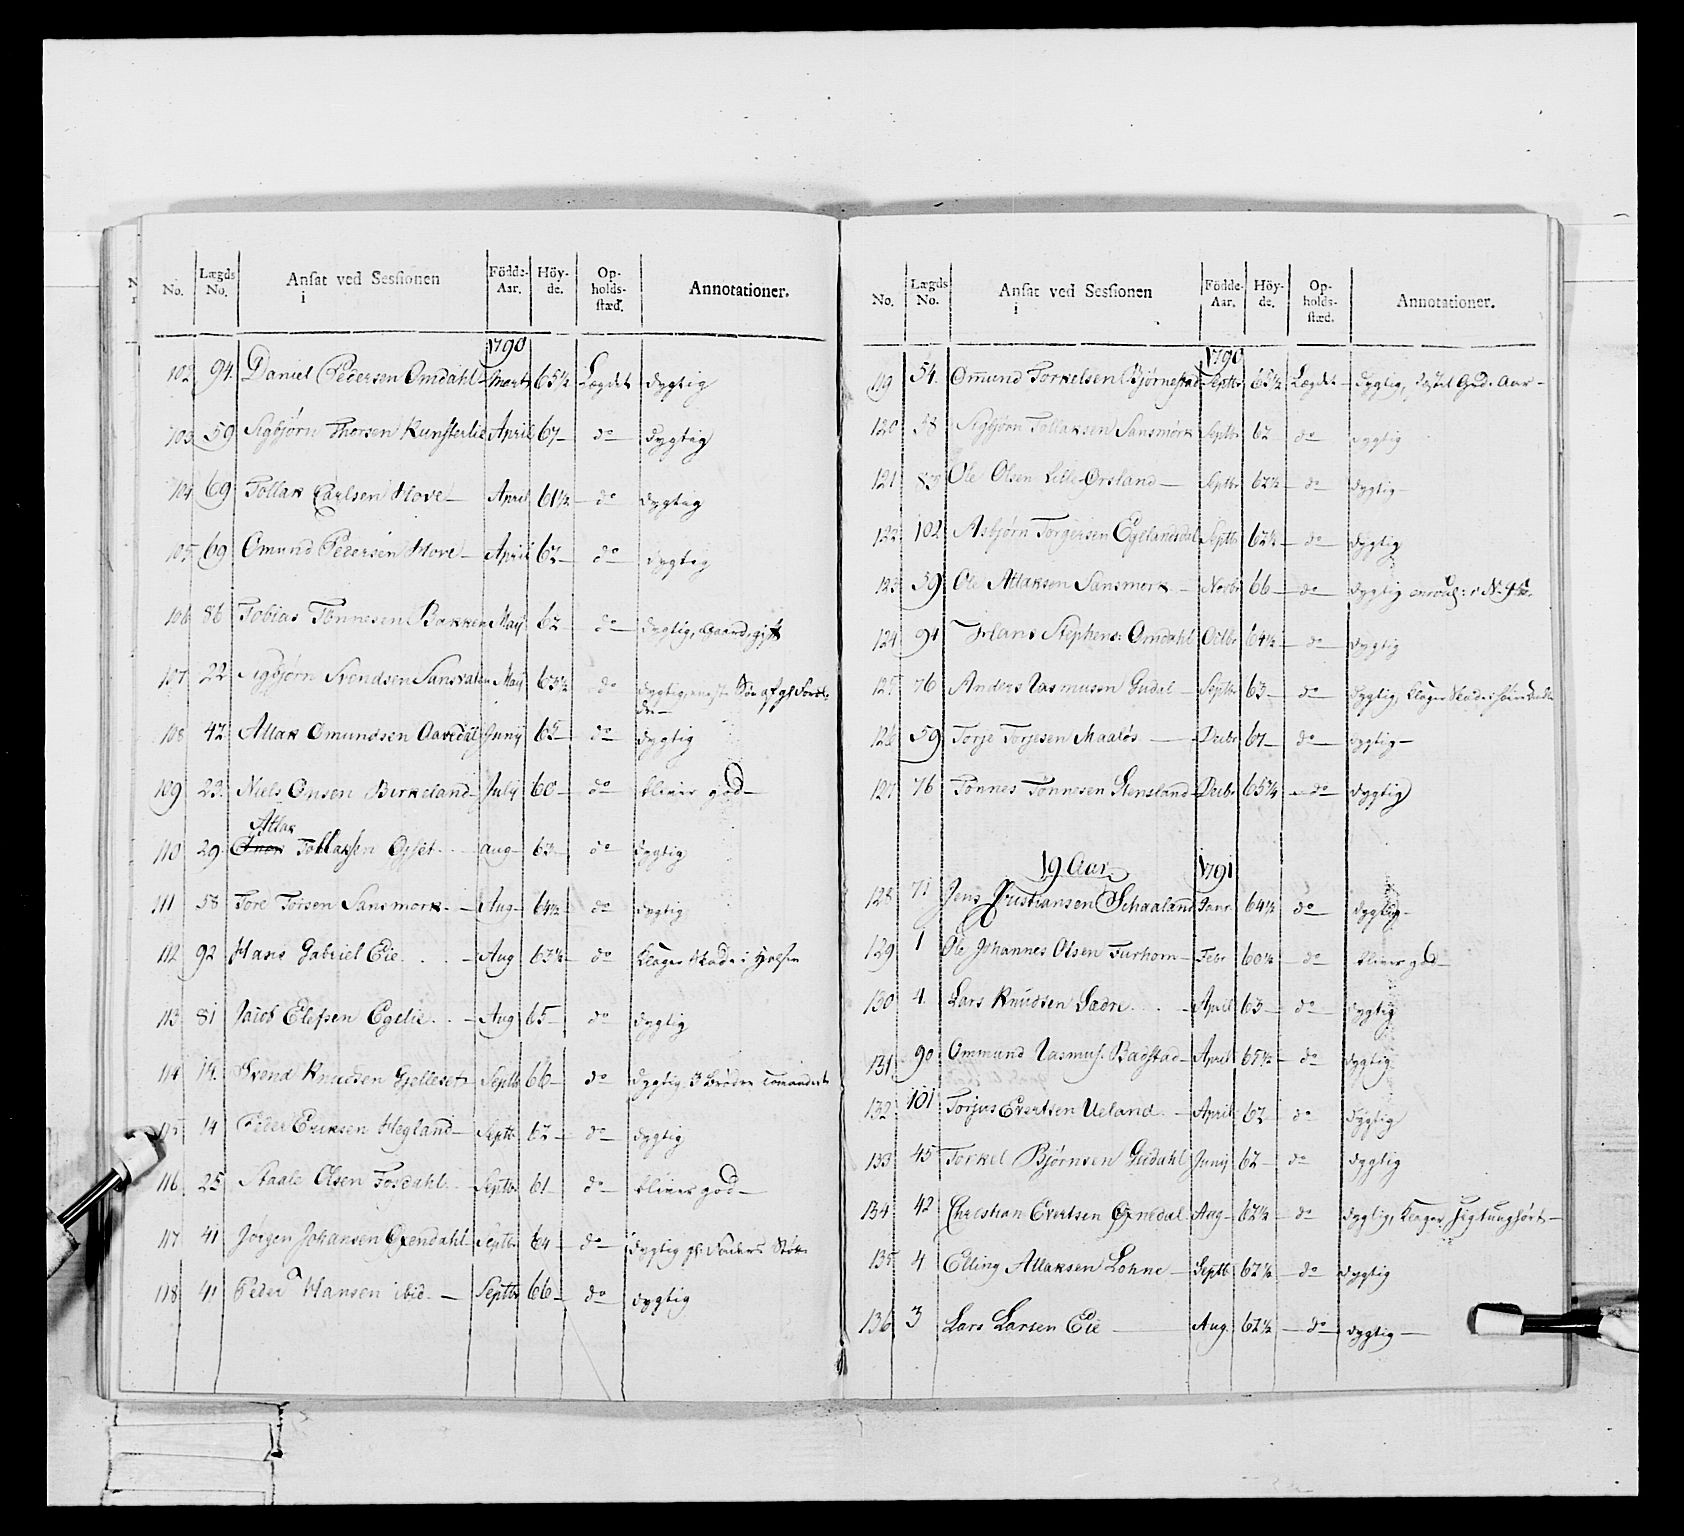 No. Lægds No. Ansat ved Sessionen i Födde-Aar. Höy-de. Op-holds-stæd. Annotationer.
1790
102 94 Daniel Pedersen Omdahl Marts 65½ Lægdet dygtig
103 59 Sigbjørn Thorsen Kunsterlie April 67 do dygtig
104 69 Tollak Carlsen Hove April 61½ do dygtig
105 69 Omund Pedersen Hove April 62 do dygtig
106 86 Tobias Tönnesen Bakken Maij 62 do dygtig, Gaard, gift
107 22 Sigbjørn Svendsen Maij 63½ do dygtig, eneste Søn af gl Foræl-
dre
108 42 Atlak Omundsen Junij 65 do dygtig
109 23 Niels Onsen Birkeland July 60 do bliver god
Atlak
110 29 Tollaksen Osset Aug 63 do dygtig
111 58 Tore Torsen Sansmork Aug 64½ do dygtig
112 92 Hans Gabriel Eie Aug 63½ do klager Skade i
113 81 Jacob Elefsen Egelie Aug 65 do dygtig
114 14 Svend Knudsen Gjelleset Septb 66 do dygtig, 3 Brödre
115 14 Peder Eriksen Hegland Septb 62 do dygtig
116 25 Staale Olsen Fosdahl Septbr 61 do bliver god
117 41 Jörgen Johansen Oxendahl Septbr 64 do dygtig gl. Faders Støtte
118 41 Peder Hansen ibid. Septbr 66 do dygtig
No. Lægds No. Ansat ved Sessionen i Födde-Aar. Höy-de. Op-holds-stæd. Annotationer.
1790
119 54 Omund Torkelsen Bjørnestad Septbr 65½ Lægdet dygtig,
120 58 Sigbjørn Tollaksen Sansmörk Septbr 62 do dygtig
121 83 Ole Olsen Lille Orsland Septbr 62½ do dygtig
122 102 Asbjørn Torgersen Egelandsdal Septbr 62½ do dygtig
123 59 Ole Atlaksen Sansmork Novbr 66 do dygtig
124 91 Hans Stephens: Omdahl Octbr 64½ do dygtig
125 76 Anders Rasmusen Gudel Septbr 63 do dygtig, klager Skade
126 59 Torje Torjesen Maaløs Decbr 67 do dygtig
127 76 Tönnes Tönnesen Stensland Decbr 65¼ do dygtig
19 Aar 1791
128 71 Jens Christiansen Schaaland Janr 64½ do dygtig
129 1 Ole Johannes Olsen Turhom Febr 60½ do bliver god
130 4 Lars Knudsen Ladre April 63 do dygtig
131 90 Ommund Rasmus: Badstad April 65½ do dygtig
132 101 Torjus Evertsen Ueland April 62 do dygtig
133 45 Torkel Bjørnsen Gudahl Junij 62 do dygtig
134 42 Christian Evertsen Oxnedal Aug 62½ do dygtig, klager sig tunghört
135 4 Elling Atlaksen Lohne Septb 62½ do dygtig
136 3 Lars Larsen Eie Aug. 62½ do dygtig